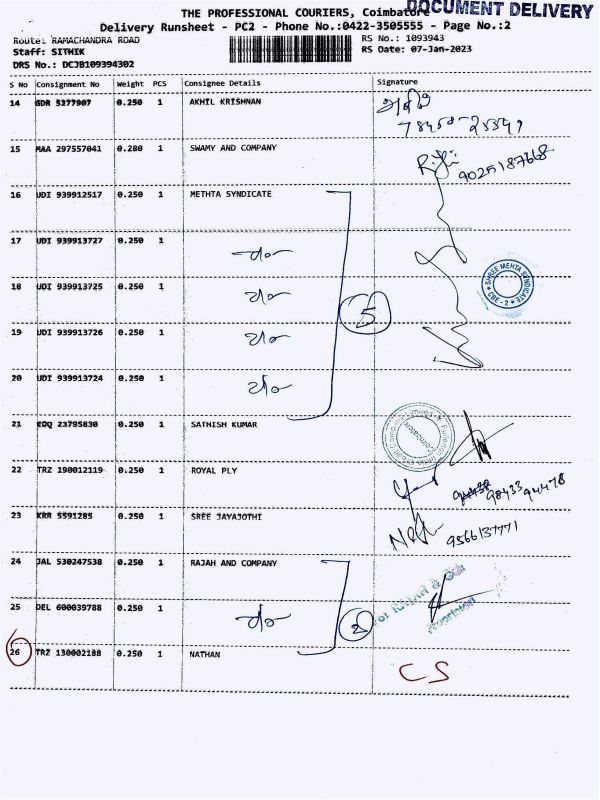 THE PROFESSIONAL COURIERS, Coimbatore
DOCUMENT DELIVERY
Delivery Runsheet - PC2 - Phone No.:0422-3505555 - Page No.:2
Route: RAMACHANDRA ROAD RS No.: 1093943
Staff: SITHIK RS Date: 07-Jan-2023
DRS No.: DCJB109394302
S No Consignment No Weight PCS Consignee Details Signature
14 GDR 5377907 0.250 1 AKHIL KRISHNAN
15 MAA 297557041 0.280 1 SWAMY AND COMPANY 9025187668
16 UDI 939912517 0.250 1 METHTA SYNDICATE
17 UDI 939913727 0.250 1
18 UDI 939913725 0.250 1 SHREE MEHTA SYNDICATE CBE - 2
19 UDI 939913726 0.250 1 5
20 UDI 939913724 0.250 1
21 EOQ 23795830 0.250 1 SATHISH KUMAR
22 TRZ 190012119 0.250 1 ROYAL PLY 98433 94478
23 KRR 5591285 0.250 1 SREE JAYAJOTHI 9566137771
24 JAL 530247538 0.250 1 RAJAH AND COMPANY
25 DEL 600039788 0.250 1 2 For RAJAH & CO.
26 TRZ 130002188 0.250 1 NATHAN CS